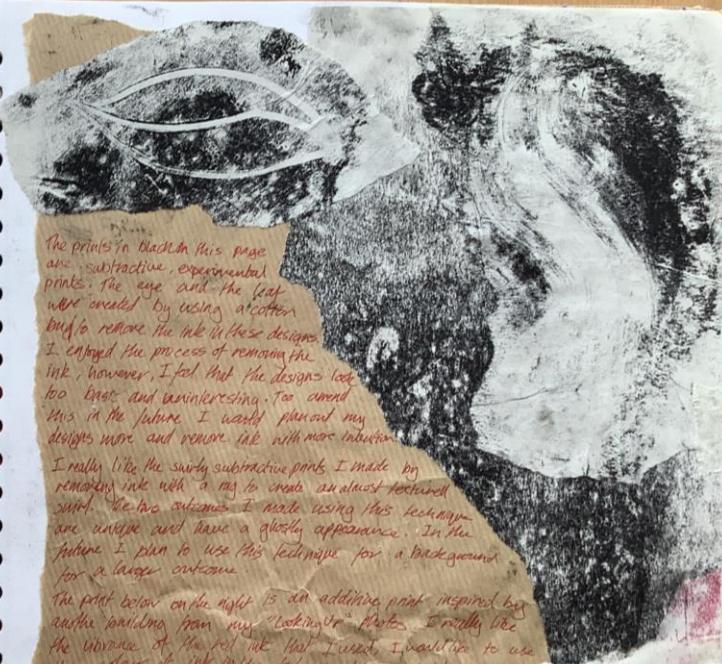 The prints in black on this page
are subtractive, experimental
prints. The eye and the leaf
were created by using a cotton
bud to remove the ink in these designs.
I enjoyed the process of removing the
ink, however, I feel that the designs look
too basic and uninteresting. Too amend
this in the future I would plan out my
designs more and remove ink with more intention
I really like the swirly subtractive prints I made by
removing ink with a rag to create an almost textured
swirl. The two outcomes I made using this technique
are unique and have a ghostly appearance. In the
future I plan to use this technique for a background
for a larger outcome
The print below on the right is an additive print inspired by
another building from my "Looking Up" photos. I really like
the vibrance of the red ink that I used, I would like to use